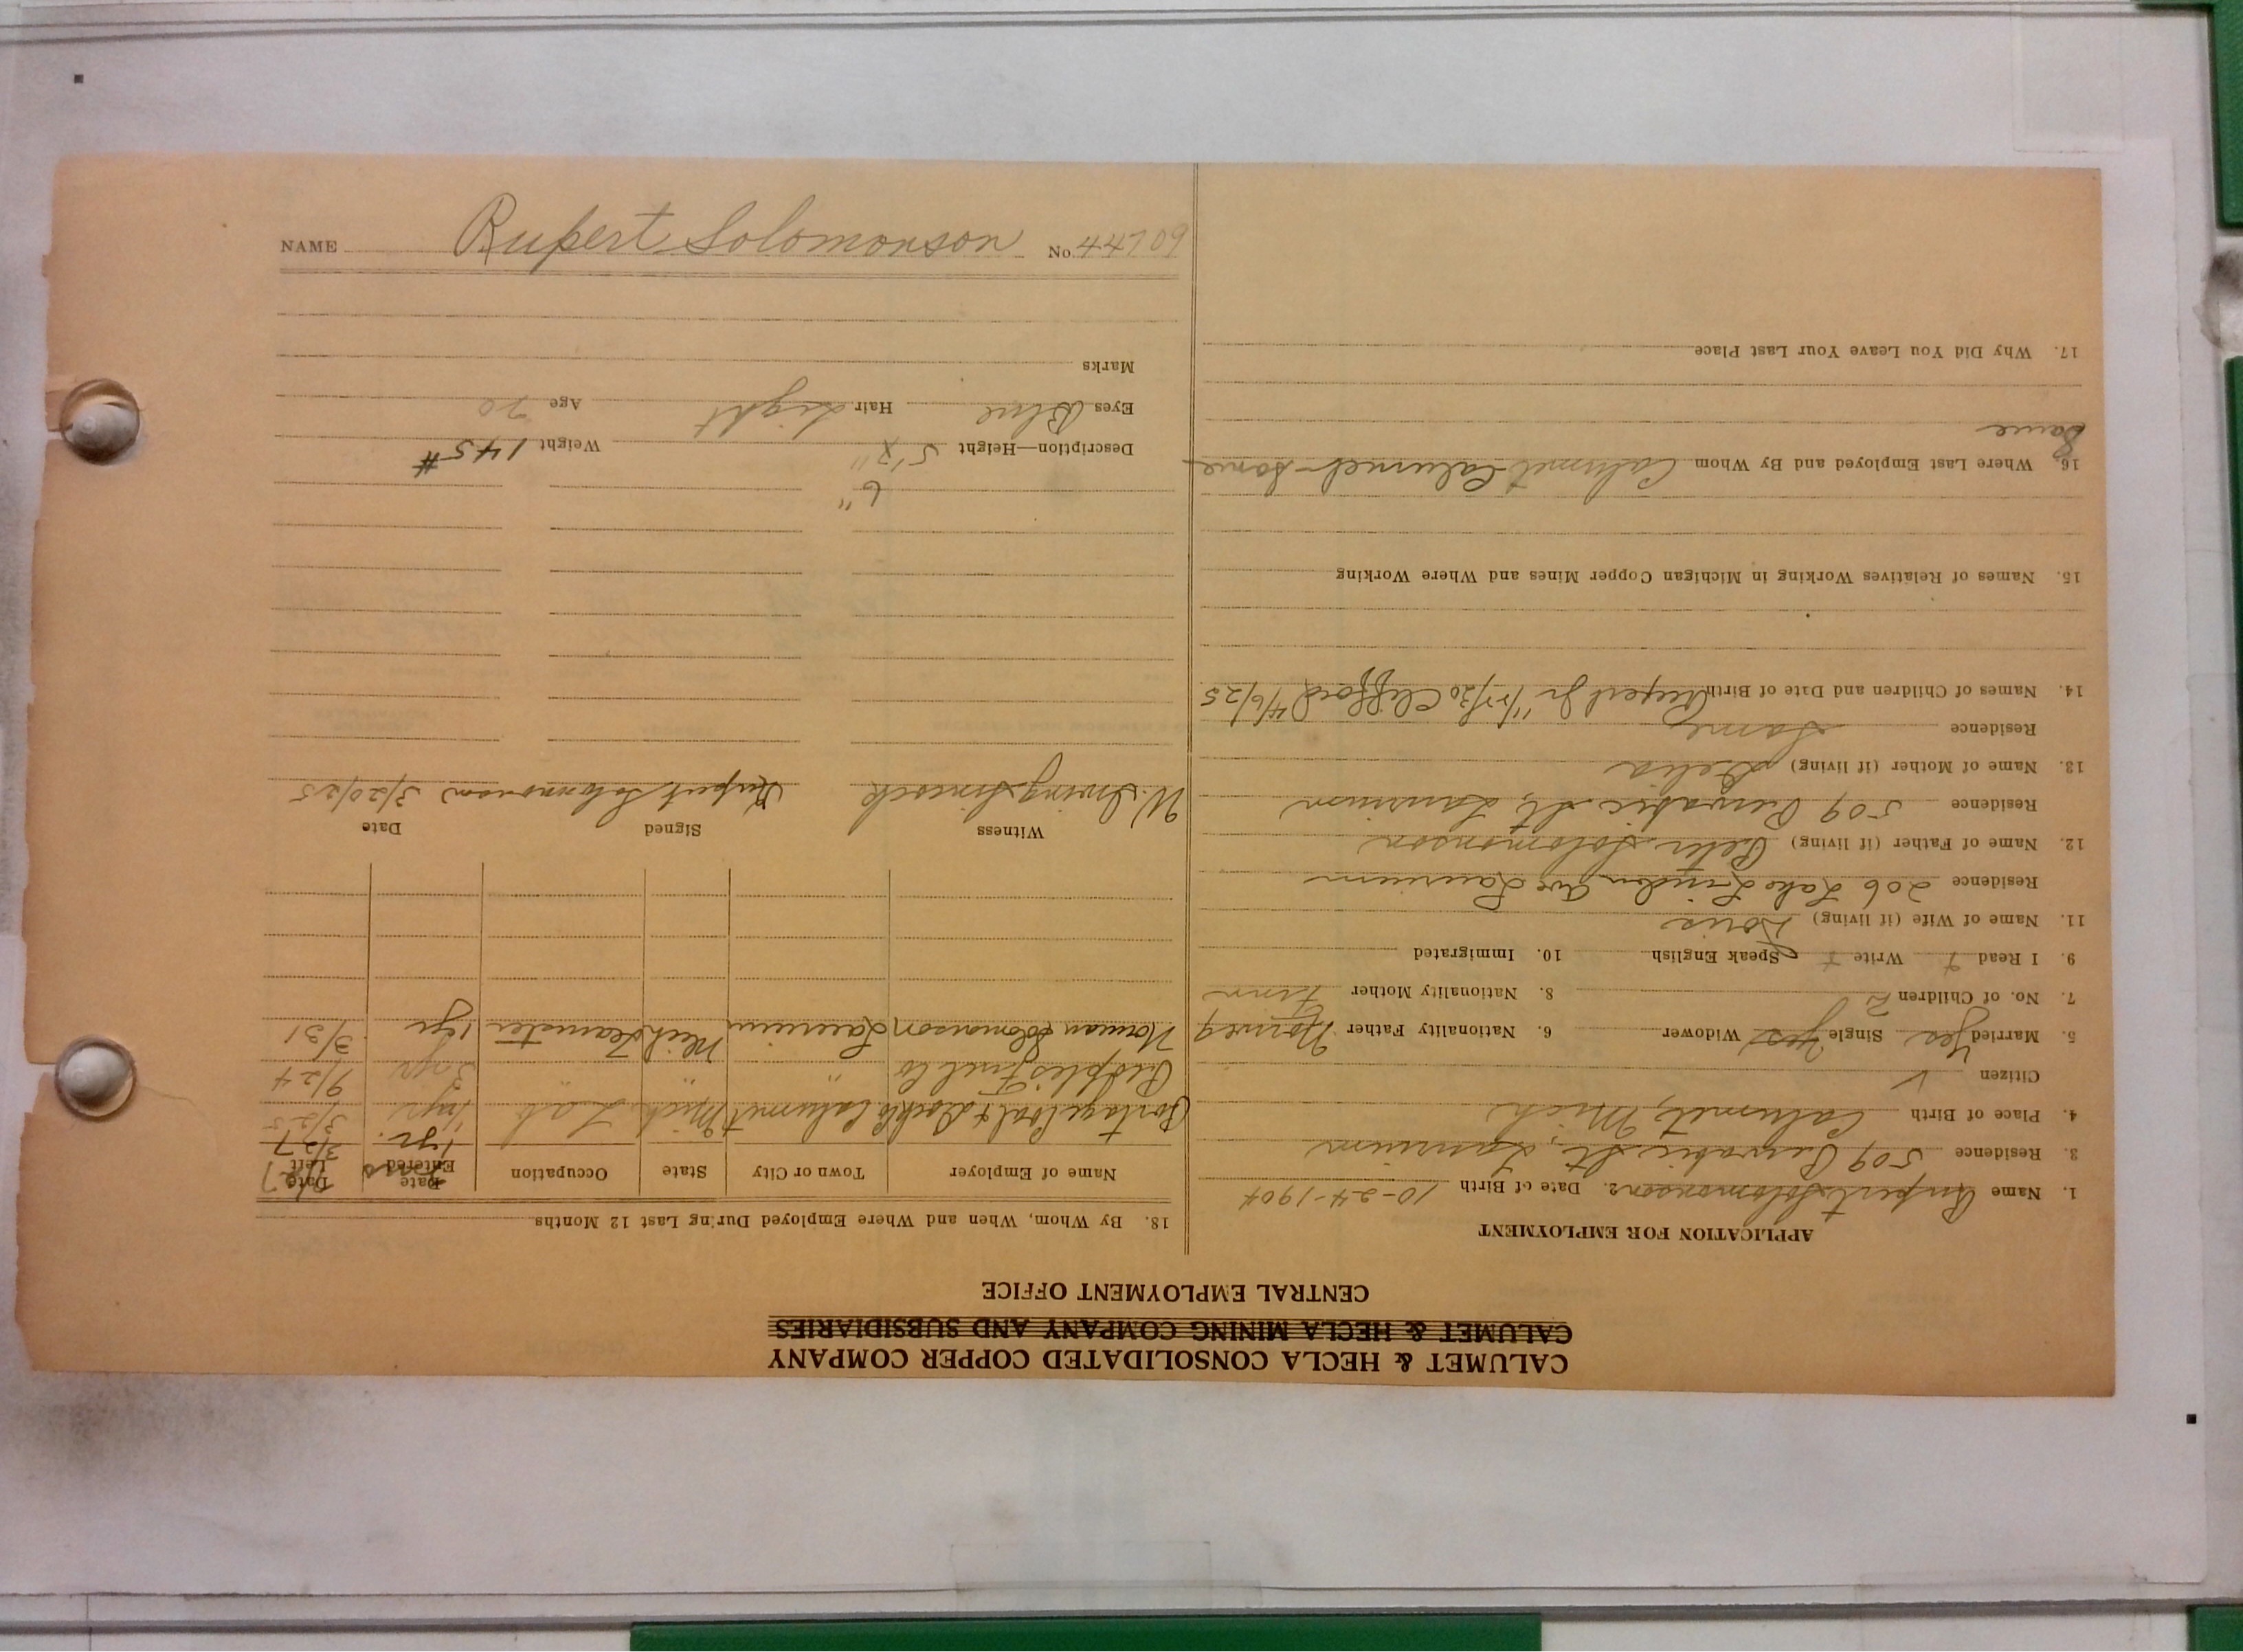 NAME Rupert Solomonson No. 44709
CALUMET & HECLA CONSOLIDATED COPPER COMPANY
CALUMET & HECLA MINING COMPANY AND SUBSIDIARIES
CENTRAL EMPLOYMENT OFFICE
APPLICATION FOR EMPLOYMENT
1. Name Rupert Solomonson 2. Date of Birth 10-24-1904
3. Residence 509 Pewabic St, Laurium
4. Place of Birth Calumet, Mich
Citizen ✓
5. Married Yes Single Yes Widower 6. Nationality Father Norweg
7. No. of Children 2 8. Nationality Mother Finn
9. I Read Write Speak English 10. Immigrated
11. Name of Wife (if living) Doris
Residence 206 Lake Linden Ave Laurium
12. Name of Father (if living) Peter Solomonson
Residence 509 Pewabic St, Laurium
13. Name of Mother (if living)
Residence Same
14. Names of Children and Date of Birth Rupert Jr Clifford 4/6/25
15. Names of Relatives Working in Michigan Copper Mines and Where Working
16. Where Last Employed and By Whom Calumet Calumet - Same
Same
17. Why Did You Leave Your Last Place
18. By Whom, When and Where Employed During Last 12 Months
Name of Employer Town or City State Occupation Date Entered Date Left
1 yr. 3/27
Portage Coal & Dock Co Calumet Mich Lab 1 yr 3/25
Peoples Fuel Co " " " 3 yr 9/24
Norman Solomonson Laurium Mich Teamster 1 yr 3/31
Witness Signed Date
W. Irving Rupert Solomonson 3/20/25
6"
Description—Height 5' Weight 145 #
Eyes Blue Hair Light Age 20
Marks